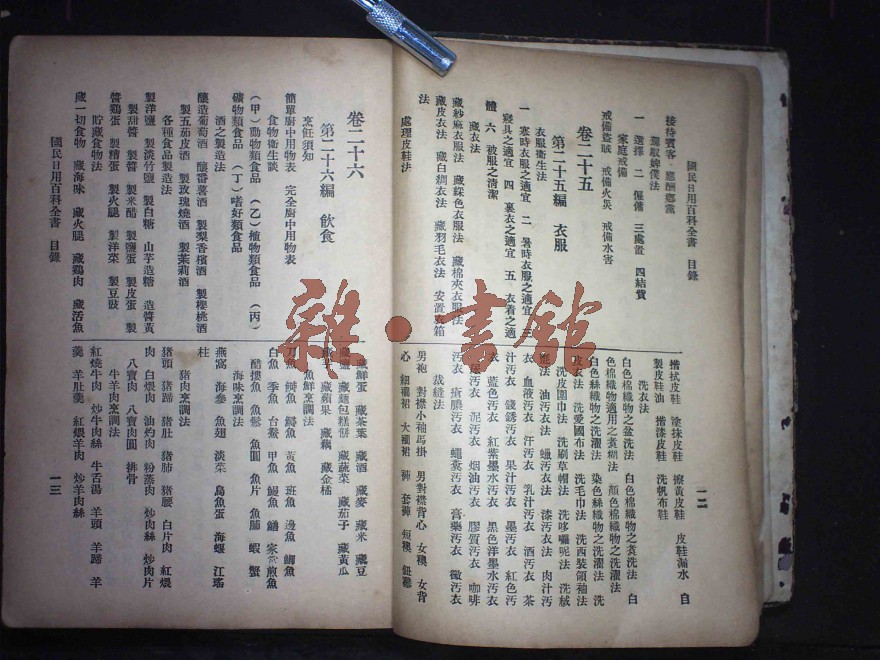 國民日用百科全書 目錄
一二
接待賓客 應酬鄉黨
駕馭婢僕法
一 選擇 二 僱傭 三處置 四結賞
家庭戒備
戒備盜賊 戒備火災 戒備水害
卷二十五
第二十五編 衣服
衣服衛生法
一 寒時衣服之適宜 二 暑時衣服之適宜 三
寢具之適宜 四 裏衣之適宜 五 衣着之適
體 六 被服之清潔
藏衣法
藏紗麻衣服法 藏綵色衣服法 藏棉夾衣服法
藏皮衣法 藏白綢衣法 藏羽毛衣法 安置衣箱
法
處理皮鞋法
揩拭皮鞋 塗抹皮鞋 擦黃皮鞋 皮鞋漏水 自
製皮鞋油 揩漆皮鞋 洗帆布鞋
洗衣法
白色棉織物之盆洗法 白色棉織物之煑洗法 白
色棉織物適用之煑糊法 顏色棉織物之洗濯法
白色絲織物之洗濯法 染色絲織物之洗濯法 洗
皮衣法 洗愛國布法 洗毛巾法 洗西裝領袖法
洗皮圍巾法 洗刷草帽法 洗哆囉呢法 洗絨
法 油汚衣法 蠟汚衣法 漆汚衣法 肉汁汚
衣 血液汚衣 汗汚衣 乳汁汚衣 酒汚衣 茶
汁汚衣 鐵銹汚衣 果汁汚衣 墨汚衣 紅色汚
衣 藍色汚衣 紅紫墨水汚衣 黑色洋墨水汚衣
汚衣 泥汚衣 烟油汚衣 膠質汚衣 咖啡
汚衣 瘡膿汚衣 蠅糞汚衣 膏藥汚衣 黴汚衣
裁縫法
男袍 對襟小袖馬掛 男對襟背心 女襖 女背
心 細襉裙 大襉裙 褲 套褲 短襖
卷二十六
第二十六編 飲食
烹飪須知
簡單廚中用物表 完全廚中用物表
食物衛生談
（甲）動物類食品 （乙）植物類食品 （丙）
礦物類食品 （丁）嗜好類食品
酒之製造法
釀造葡萄酒 釀番薯酒 製梨香檳酒 製櫻桃酒
製五茄皮酒 製玫瑰燒酒 製茉莉酒
各種食品製造法
製洋鹽 製淡竹鹽 製白糖 山芋造糖 造醬黃
製甜醬 製醬 製米醋 製鹽蛋 製皮蛋 製
醬鷄蛋 製糟蛋 製火腿 製洋菜 製豆豉
貯藏食物法
藏一切食物 藏海味 藏火腿 藏鷄肉 藏活魚
鮮蛋 藏茶葉 藏酒 藏麥 藏米 藏豆
藏鹽 藏麵包糕餅 藏蔬菜 藏茄子 藏黃瓜
藏蘋果 藏藕 藏金橘
魚鮮烹調法
刀魚 鰣魚 鱖魚 黃魚 班魚 邊魚 鯽魚
白魚 季魚 台鯗 甲魚 鰻魚 鱔 家常煎魚
醋摟魚 魚鬆 魚圓 魚片 魚脯 蝦 蟹
海味烹調法
燕窩 海參 魚翅 淡菜 烏魚蛋 海蝘 江瑤
柱
猪肉烹調法
猪頭 猪蹄 猪肚 猪肺 猪腰 白片肉 紅煨
肉 白煨肉 油灼肉 粉蒸肉 炒肉絲 炒肉片
八寶肉 八寶肉圓 排骨
牛羊肉烹調法
紅燒牛肉 炒牛肉絲 牛舌湯 羊頭 羊蹄 羊
羹 羊肚羹 紅煨羊肉 炒羊肉絲
國民日用百科全書 目錄
一三
雜·書館